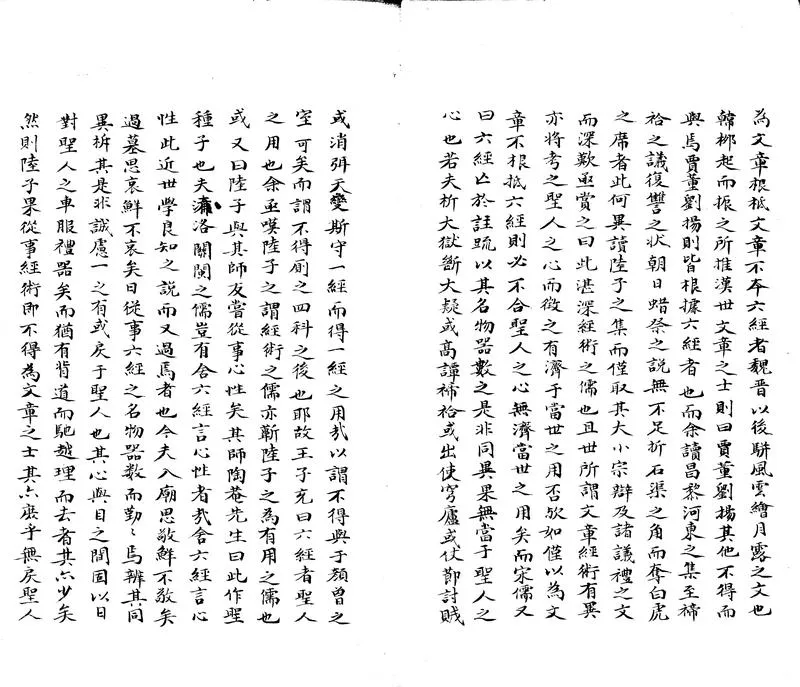 為文章根抵文章不本六經者魏晉以後駢風雲繪月露之文也
韓柳起而振之所推漢世文章之士則曰賈董劉揚其他不得而
與馬賈董劉揚則皆根據六經者也而余讀昌黎河東之集至禘
祫之議復讐之狀朝日蜡祭之說無不足折石渠之角而奪白虎
之席者此何異讀陸子之集而僅取其大小宗辯及諸議禮之文
而深歎亟賞之曰此湛深經術之儒也且世所謂文章經術有異
亦將考之聖人之心而徵之有濟于當世之用否欤如僅以為文
章不根抵六經則必不合聖人之心無濟當世之用矣而宋儒又
曰六經亡於註疏以其名物器數之是非同異果無當于聖人之
心也若夫析大獄斷大疑或高譚禘祫或出使穹廬或仗節討賊
或消弭天變斯守一經而得一經之用㦲以謂不得與于顏曾之
室可矣而謂不得廁之四科之後也耶故王子充曰六經者聖人
之用也余亟嘆陸子之謂經術之儒亦蘄陸子之為有用之儒也
或又曰陸子與其師友嘗從事心性矣其師陶菴先生曰此作聖
種子也夫濂洛關閩之儒豈有舍六經言心性者㦲舍六經言心
性此近世學良知之說而又過焉者也今夫入廟思敬鮮不敬矣
過墓思哀鮮不哀矣日從事六經之名物器數而勤〻焉辨其同
異析其是非誠慮一之有或戾于聖人也其心與目之間固以日
對聖人之車服禮器矣而猶有背道而馳越理而去者其亦少矣
然則陸子果從事經術即不得為文章之士其亦庶乎無戾聖人